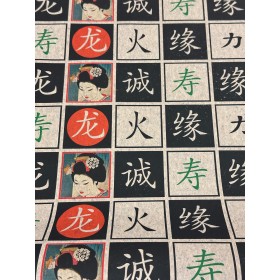 寿 龙 火 缘 力
诚 寿
寿 龙 火 缘 力
诚 寿 缘
寿 龙 火 缘 力
诚 寿
龙 火 缘
诚 寿